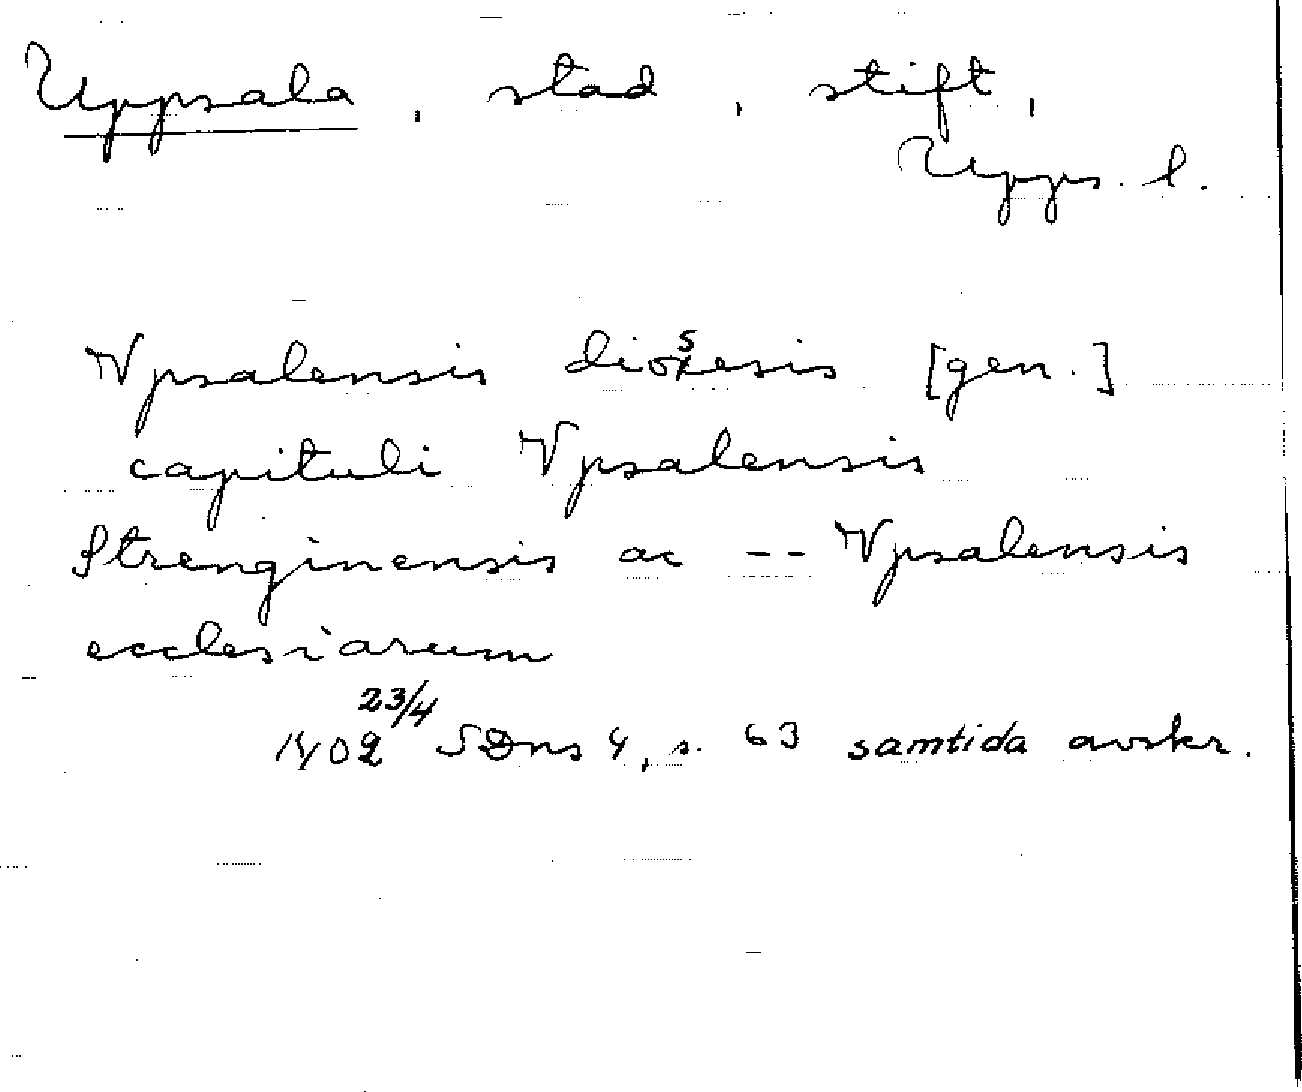 Uppsala, stad, stift,
Upps. l.
Vpsalensis diosesis [gen.]
capituli Vpsalensis
Strenginensis ac -- Vpsalensis
ecclesiarum
1402 23/4 SDns 4, s. 63 samtida avskr.